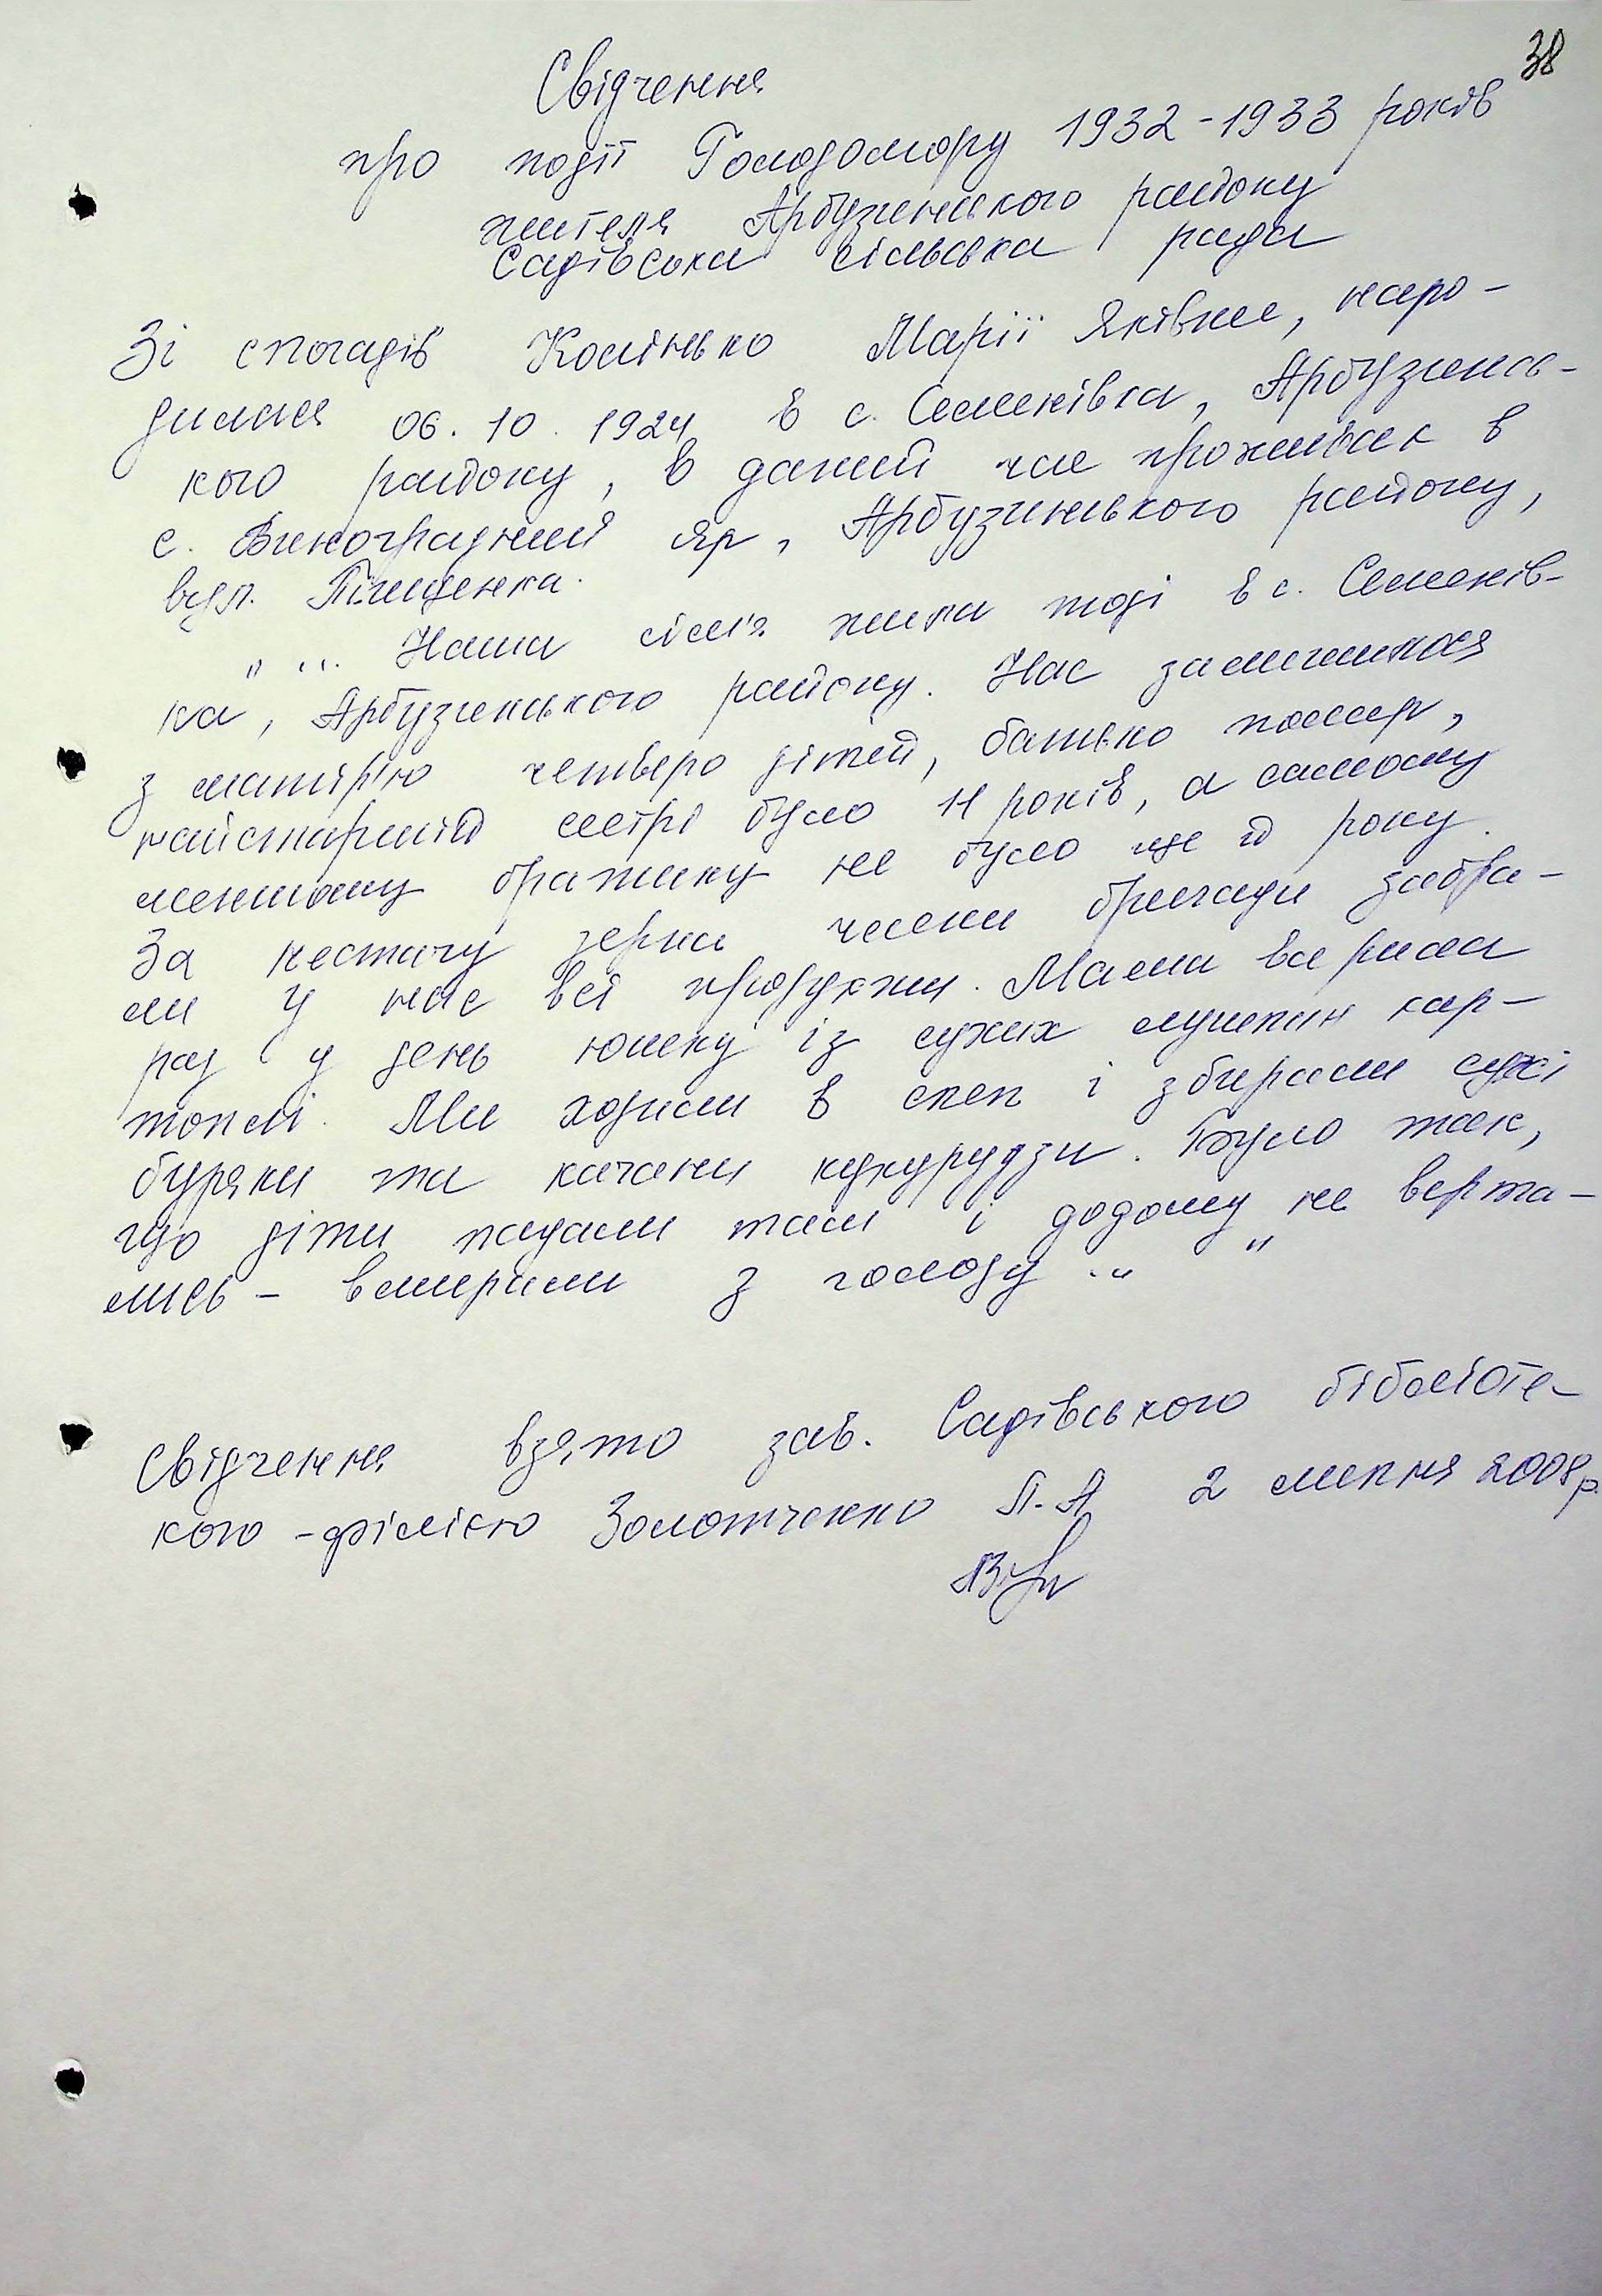 38
Свідчення
про події Голодомору 1932-1933 років
жителя Арбузинського району
Садівська сільська рада
Зі спогадів Колінько Марії Яківни, наро-
дилася 06.10.1924 в с. Семенівка, Арбузинсь-
кого району, в даний час проживає в
с. Виноградний Яр, Арбузинського району,
вул. Піщенка.
"... Наша сім'я жила тоді в с. Семенів-
ка, Арбузинського району. Нас залишилося
з матір'ю четверо дітей, батько помер,
найстаршій сестрі було 11 років, а самому
меншому братику не було ще й року.
За нестачу зерна члени бригади забра-
ли у нас всі продукти. Мама варила
раз у день юшку із сухих лушпин кар-
топлі. Ми ходили в степ і збирали сухі
буряки та качани кукурудзи. Було так,
що діти падали там і додому не верта-
лись - вмирали з голоду ..."
Свідчення взято зав. Садівського бібліоте-
кою-філією Золотченко Л.А 2 липня 2008р.